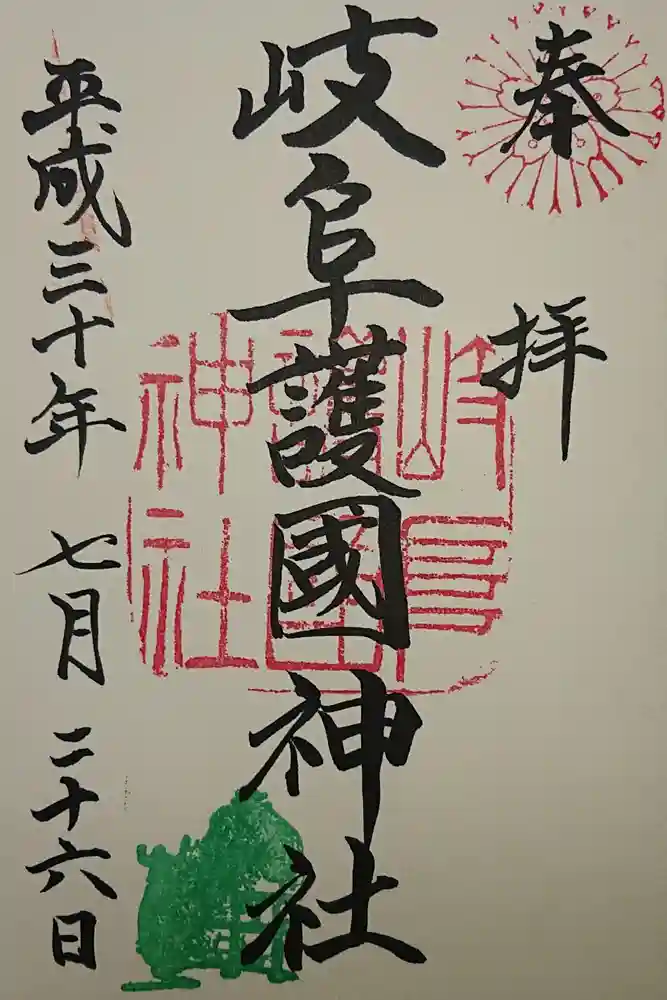 奉拝
岐阜護國神社
岐阜護国神社
平成三十年七月二十六日